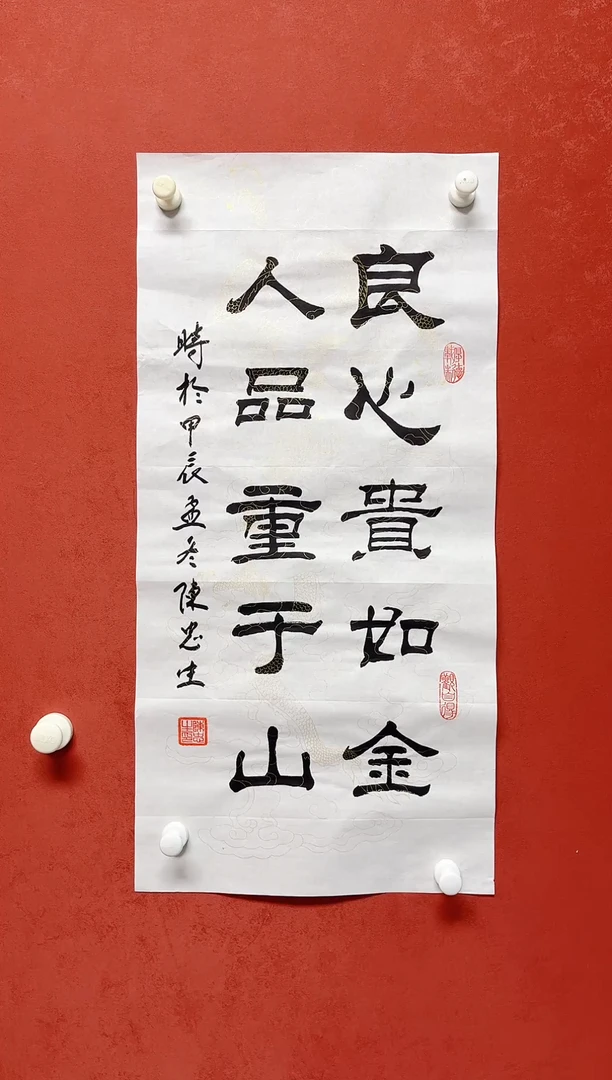 良心貴如金
人品重于山
時於甲辰孟冬陳忠生